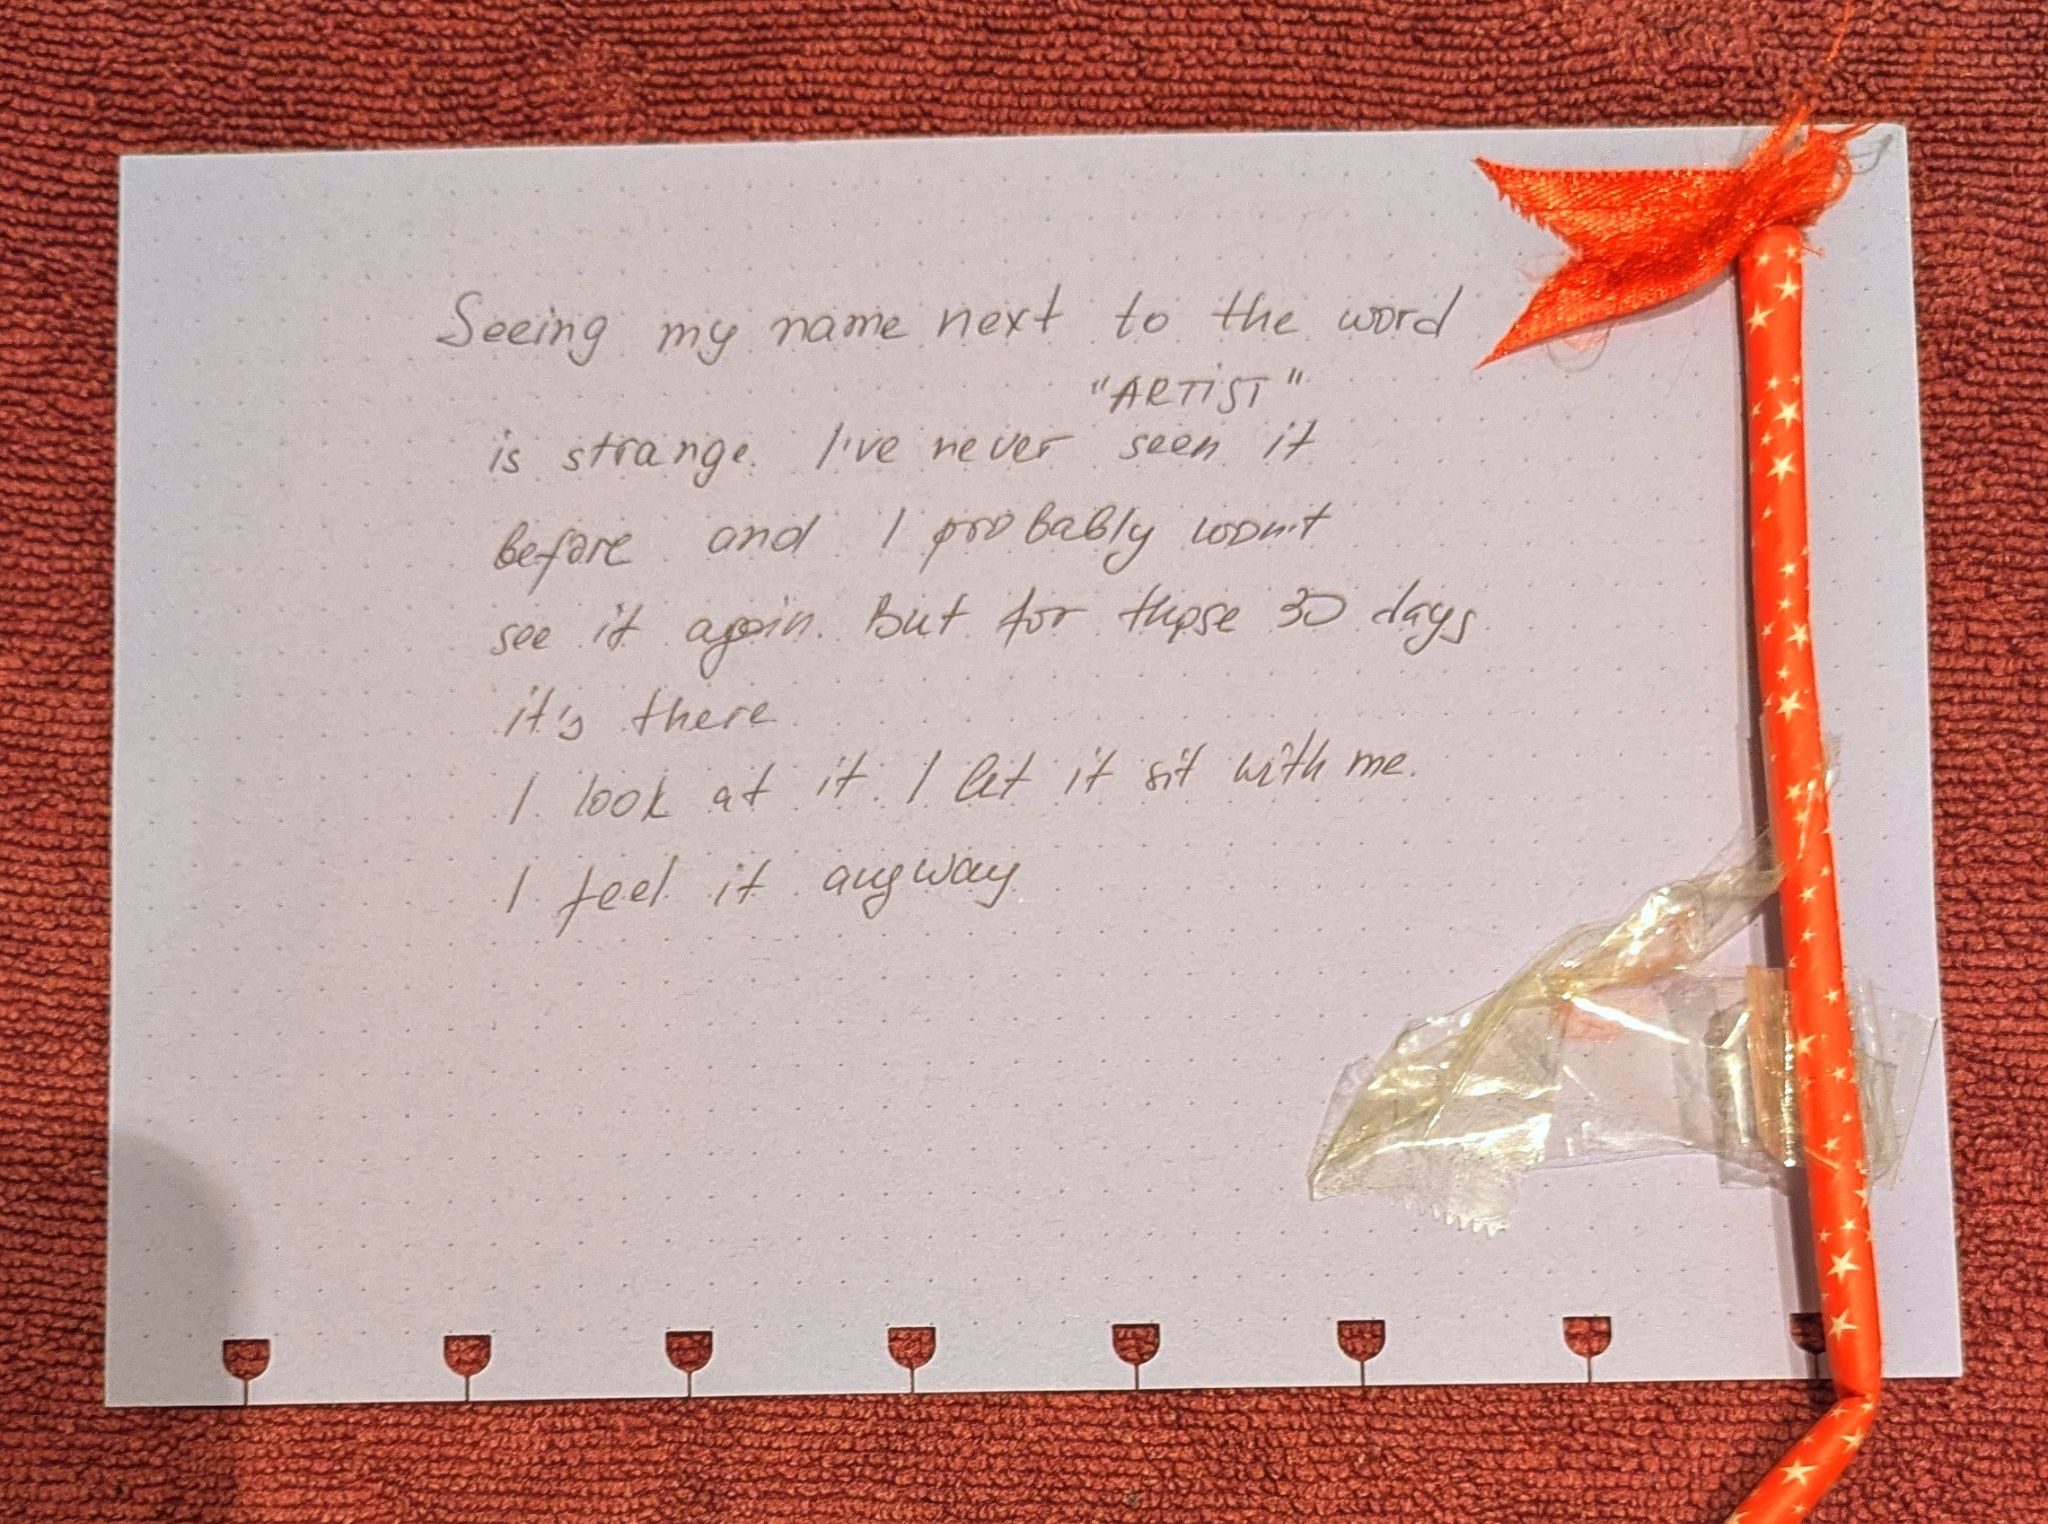 Seeing my name next to the word
"ARTIST"
is strange. I've never seen it
before and I probably won't
see it again. But for those 30 days
it's there
I look at it. I let it sit with me.
I feel it anyway